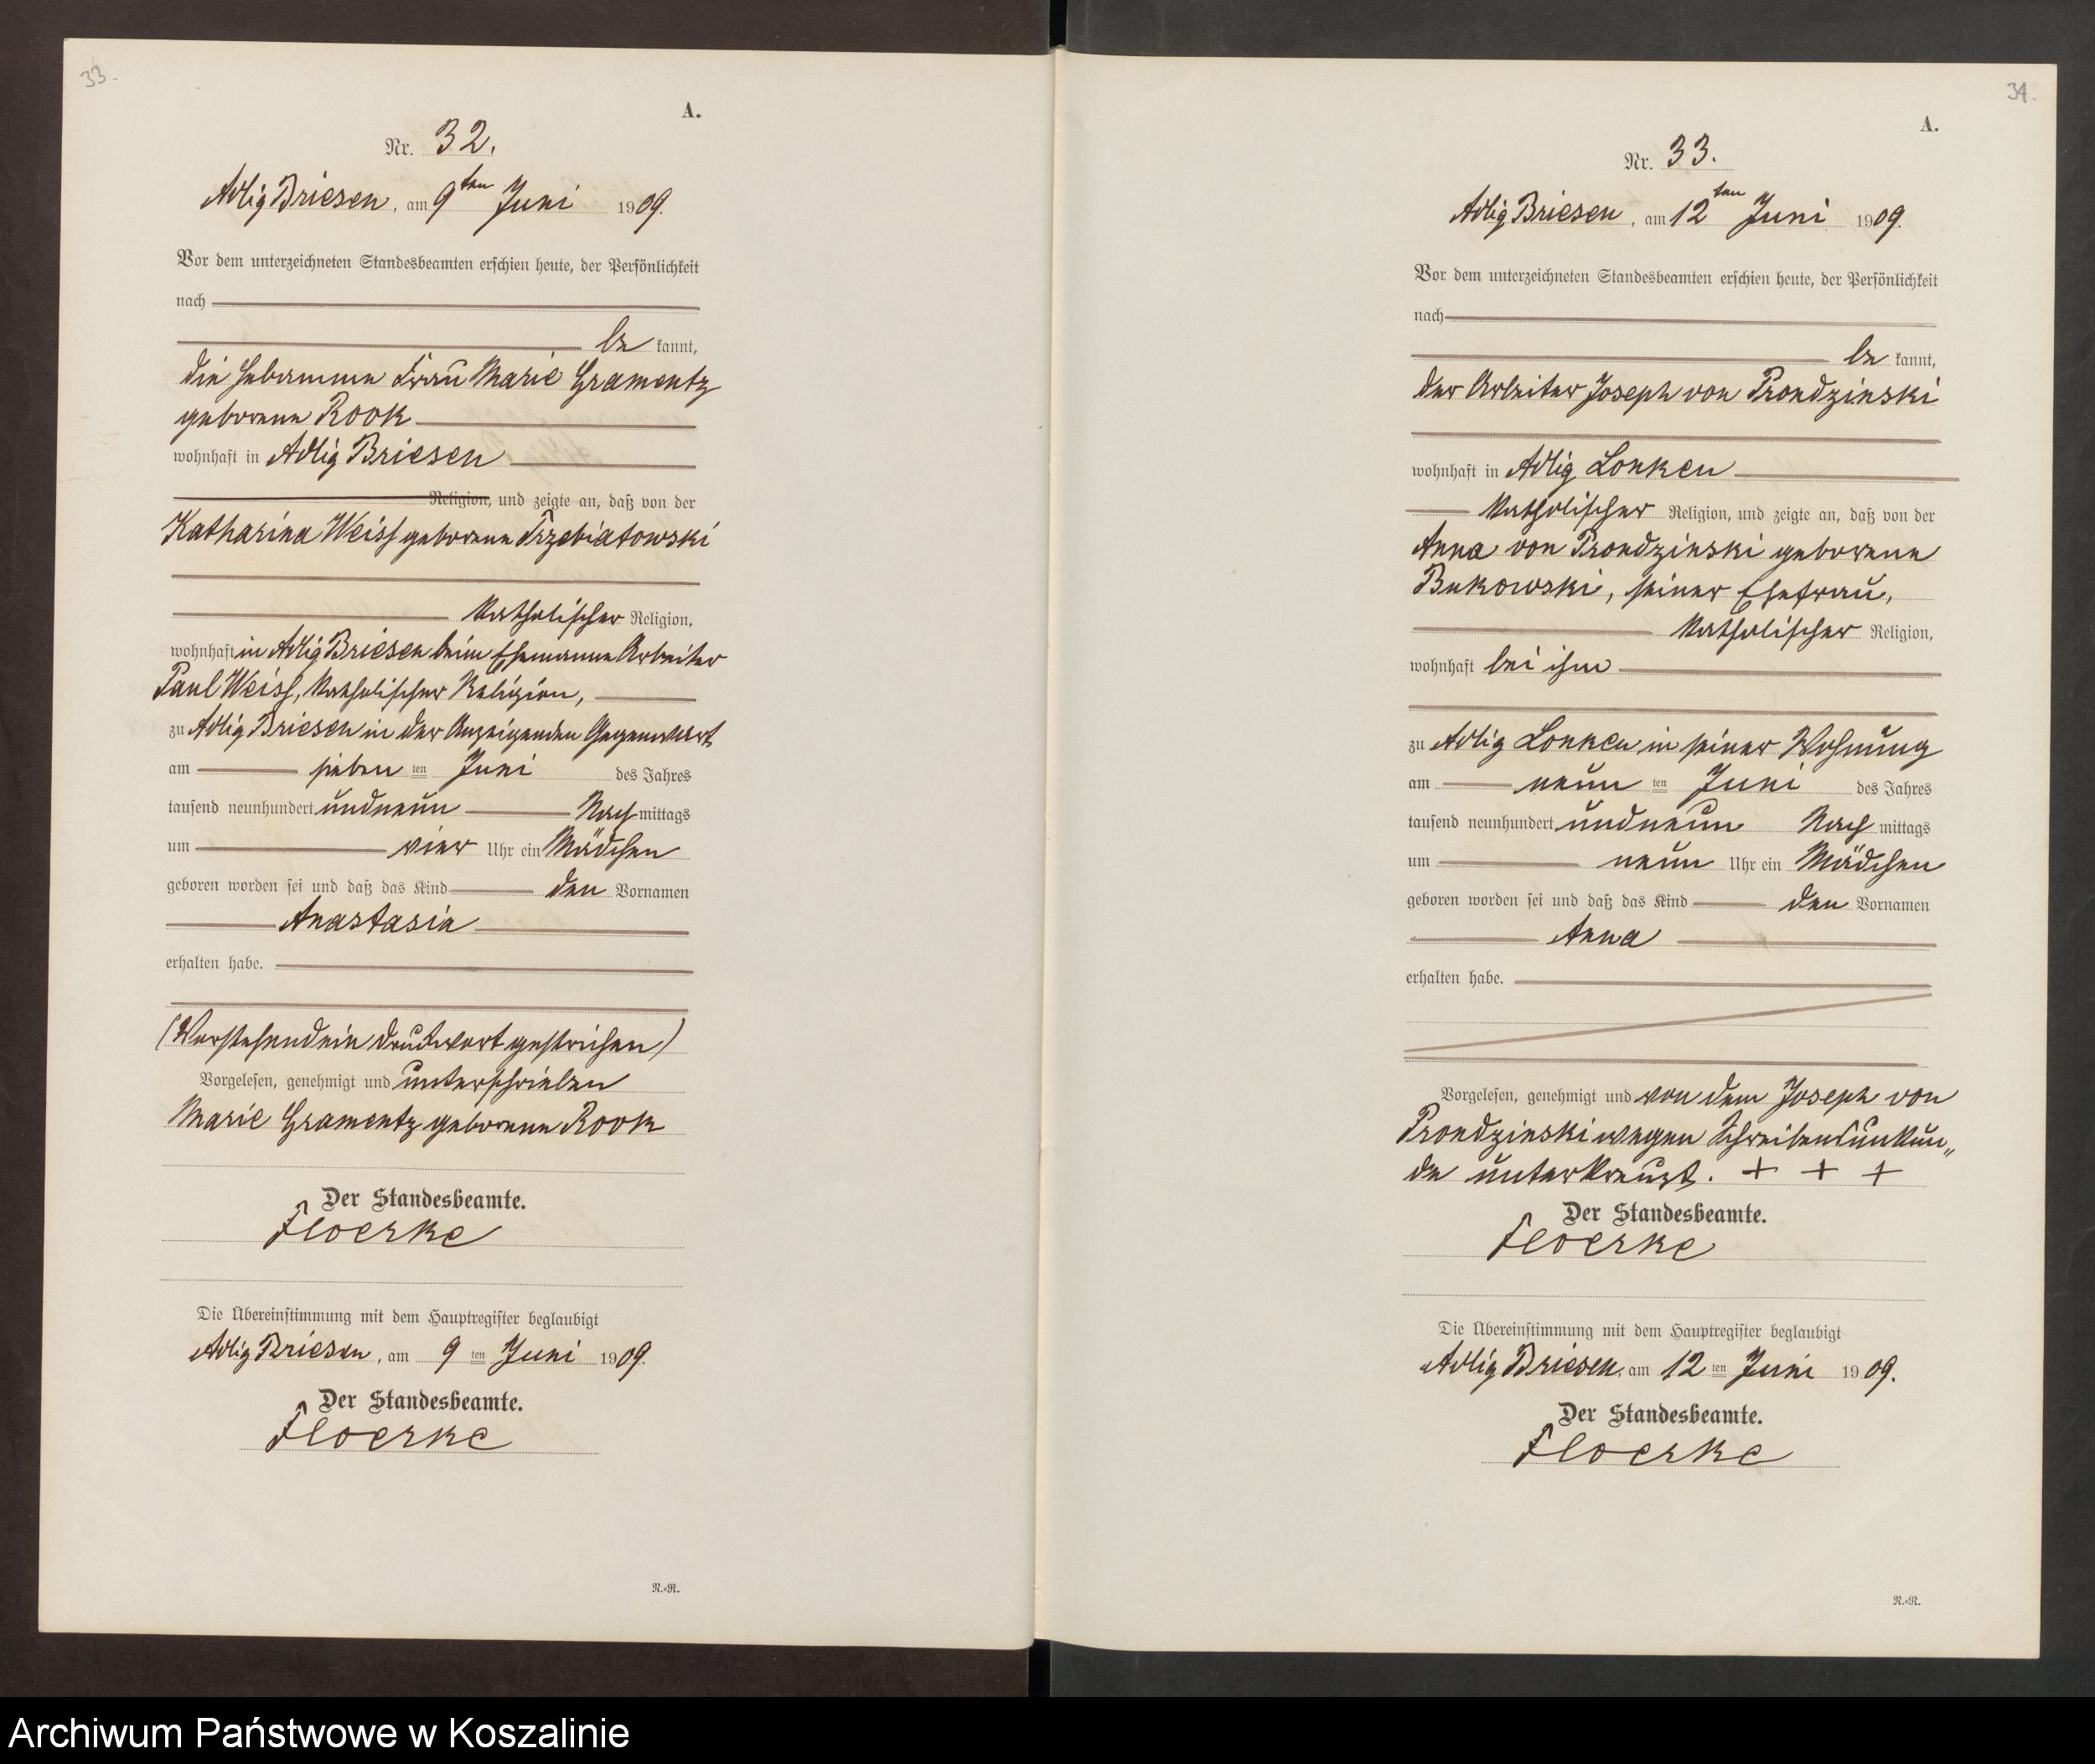 33.
A.
Nr. 32.
Adlig Briesen, am 9ten Juni 1909.
Vor dem unterzeichneten Standesbeamten erschien heute, der Persönlichkeit
nach
be kannt,
die Hebamme Frau Marie Gramentz
geborene Rook
wohnhaft in Adlig Briesen
Religion, und zeigte an, daß von der
Katharina Weiss geborene Trzebiatowski
katholischer Religion,
wohnhaft in Adlig Briesen beim Ehemanne Arbeiter
Paul Weiss, katholischer Religion,
zu Adlig Briesen in der Anzeigenden Gegenwart
am sieben ten Juni des Jahres
tausend neunhundert undneun Nach mittags
um vier Uhr ein Mädchen
geboren worden sei und daß das Kind den Vornamen
Anastasia
erhalten habe.
(Vorstehend ein Druckwort gestrichen)
Vorgelesen, genehmigt und unterschrieben
Marie Gramentz geborene Rook
Der Standesbeamte.
Floerke
Die Übereinstimmung mit dem Hauptregister beglaubigt
Adlig Briesen, am 9 ten Juni 1909.
Der Standesbeamte.
Floerke
N.=R.
34.
A.
Nr. 33.
Adlig Briesen, am 12ten Juni 1909.
Vor dem unterzeichneten Standesbeamten erschien heute, der Persönlichkeit
nach
be kannt,
der Arbeiter Joseph von Prondzinski
wohnhaft in Adlig Lonken
katholischer Religion, und zeigte an, daß von der
Anna von Prondzinski geborene
Bukowski, seiner Ehefrau,
katholischer Religion,
wohnhaft bei ihm
zu Adlig Lonken in seiner Wohnung
am neun ten Juni des Jahres
tausend neunhundert undneun Nach mittags
um neun Uhr ein Mädchen
geboren worden sei und daß das Kind den Vornamen
Anna
erhalten habe.
Vorgelesen, genehmigt und von dem Joseph von
Prondzinski wegen Schreibensunkun„
de unterkreuzt. + + +
Der Standesbeamte.
Floerke
Die Übereinstimmung mit dem Hauptregister beglaubigt
Adlig Briesen, am 12 ten Juni 1909.
Der Standesbeamte.
Floerke
N.=R.
Archiwum Państwowe w Koszalinie